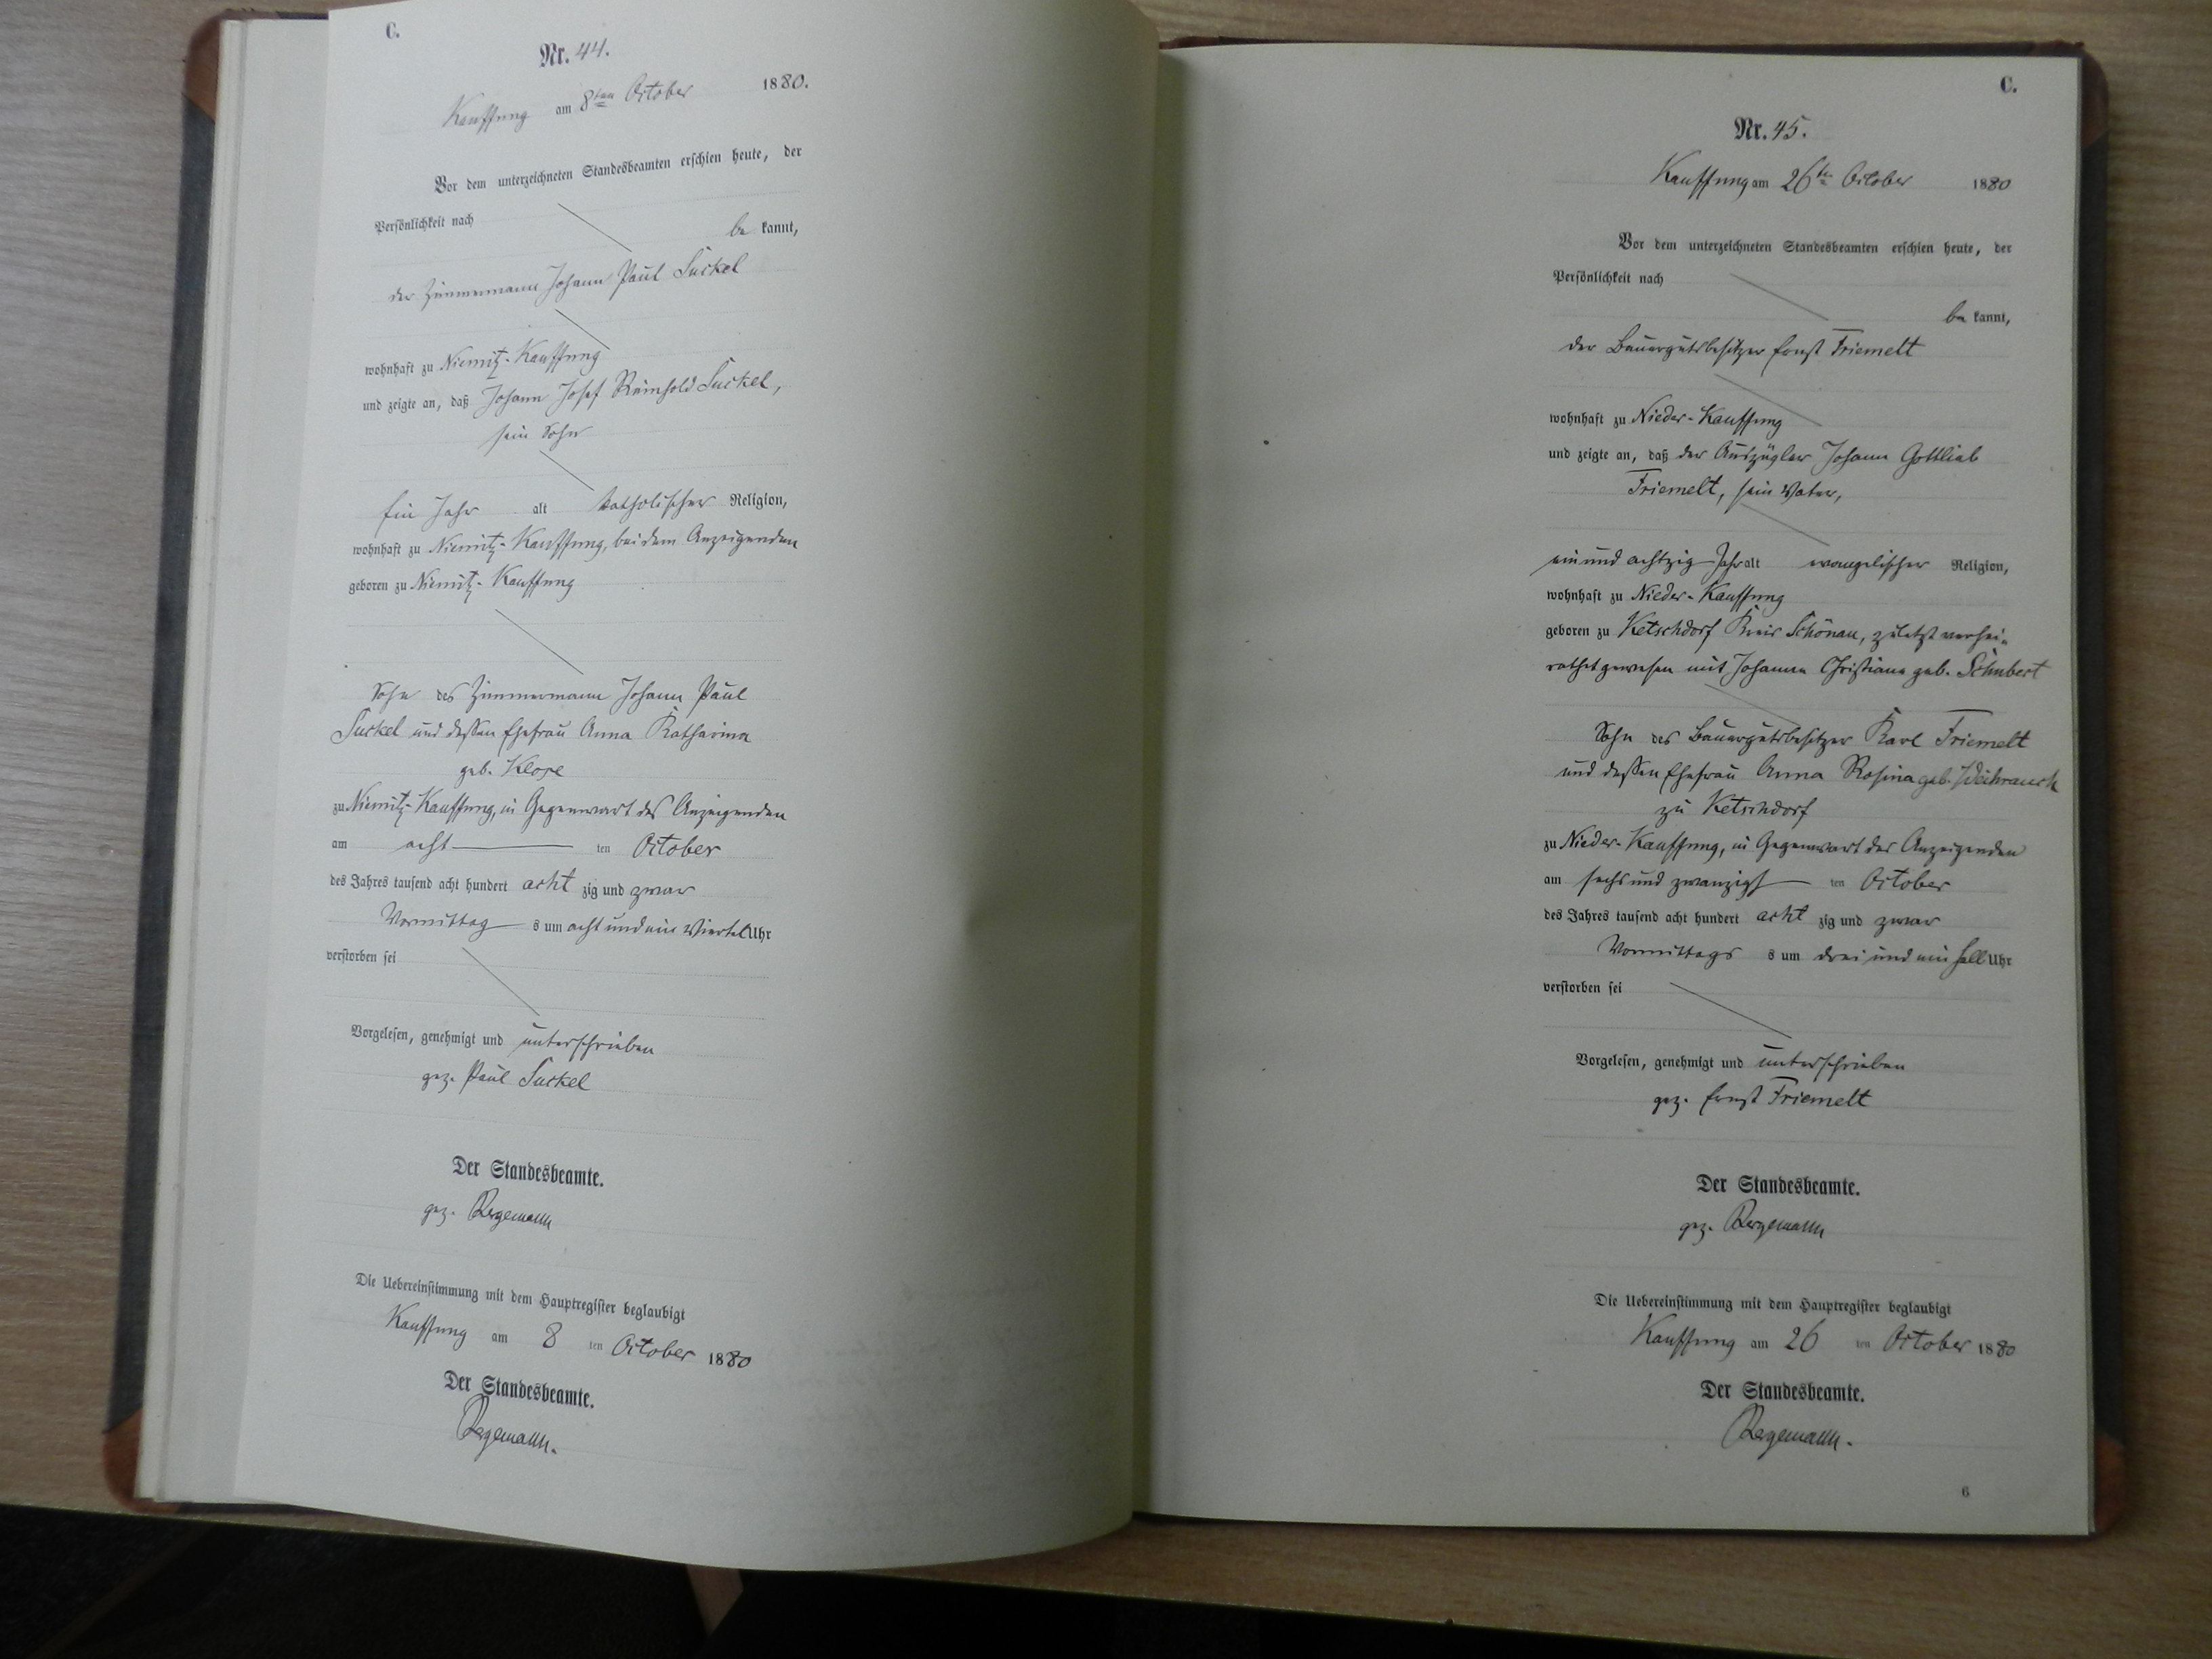 C.
Nr. 44.
Kauffung am 8ten October 1880.
Vor dem unterzeichneten Standesbeamten erschien heute, der
Persönlichkeit nach
be kannt,
der Zimmermann Johann Paul Suckel
wohnhaft zu Niemitz-Kauffung
und zeigte an, daß Johann Josef Reinhold Suckel,
sein Sohn
Ein Jahr alt katholischer Religion,
wohnhaft zu Niemitz-Kauffung, bei dem Anzeigenden
geboren zu Niemitz-Kauffung
Sohn des Zimmermann Johann Paul
Suckel und dessen Ehefrau Anna Katharina
geb. Klose
zu Niemitz-Kauffung, in Gegenwart des Anzeigenden
am acht ten October
des Jahres tausend acht hundert acht zig und zwar
Vormittag s um acht und ein Viertel Uhr
verstorben sei
Vorgelesen, genehmigt und unterschrieben
gez. Paul Suckel
Der Standesbeamte.
gez. Bergemann
Die Uebereinstimmung mit dem Hauptregister beglaubigt
Kauffung am 8 ten October 1880
Der Standesbeamte.
Bergemann.
C.
Nr. 45.
Kauffung am 26ten October 1880
Vor dem unterzeichneten Standesbeamten erschien heute, der
Persönlichkeit nach
be kannt,
der Bauergutsbesitzer Ernst Friemelt
wohnhaft zu Nieder-Kauffung
und zeigte an, daß der Auszügler Johann Gottlieb
Friemelt, sein Vater,
ein und achtzig Jahr alt evangelischer Religion,
wohnhaft zu Nieder-Kauffung
geboren zu Ketschdorf Kreis Schönau, zuletzt verhei-
rathet gewesen mit Johanne Christiane geb. Schubert
Sohn des Bauergutsbesitzer Karl Friemelt
und dessen Ehefrau Anna Rosina geb. Weihrauch
zu Ketschdorf
zu Nieder-Kauffung, in Gegenwart des Anzeigenden
am sechs und zwanzigst ten October
des Jahres tausend acht hundert acht zig und zwar
Vormittags s um drei und ein halb Uhr
verstorben sei
Vorgelesen, genehmigt und unterschrieben
gez. Ernst Friemelt
Der Standesbeamte.
gez. Bergemann
Die Uebereinstimmung mit dem Hauptregister beglaubigt
Kauffung am 26 ten October 1880
Der Standesbeamte.
Bergemann.
6